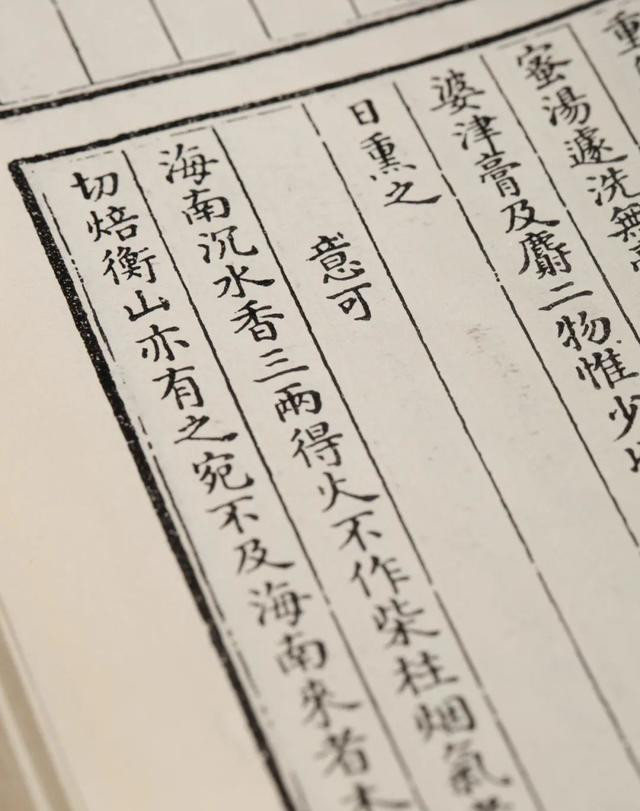 重
蜜湯遽洗無
婆津膏及麝二物惟少
日熏之
意可
海南沉水香三兩得火不作柴柱烟氣
切焙衡山亦有之宛不及海南來者